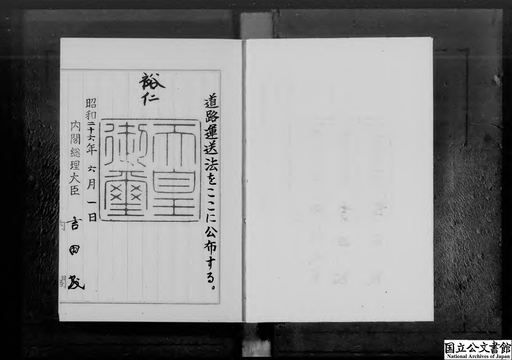 道路運送法をここに公布する。
裕仁
天皇
御璽
昭和二十六年六月一日
内閣総理大臣 吉田茂
内閣
国立公文書館
National Archives of Japan